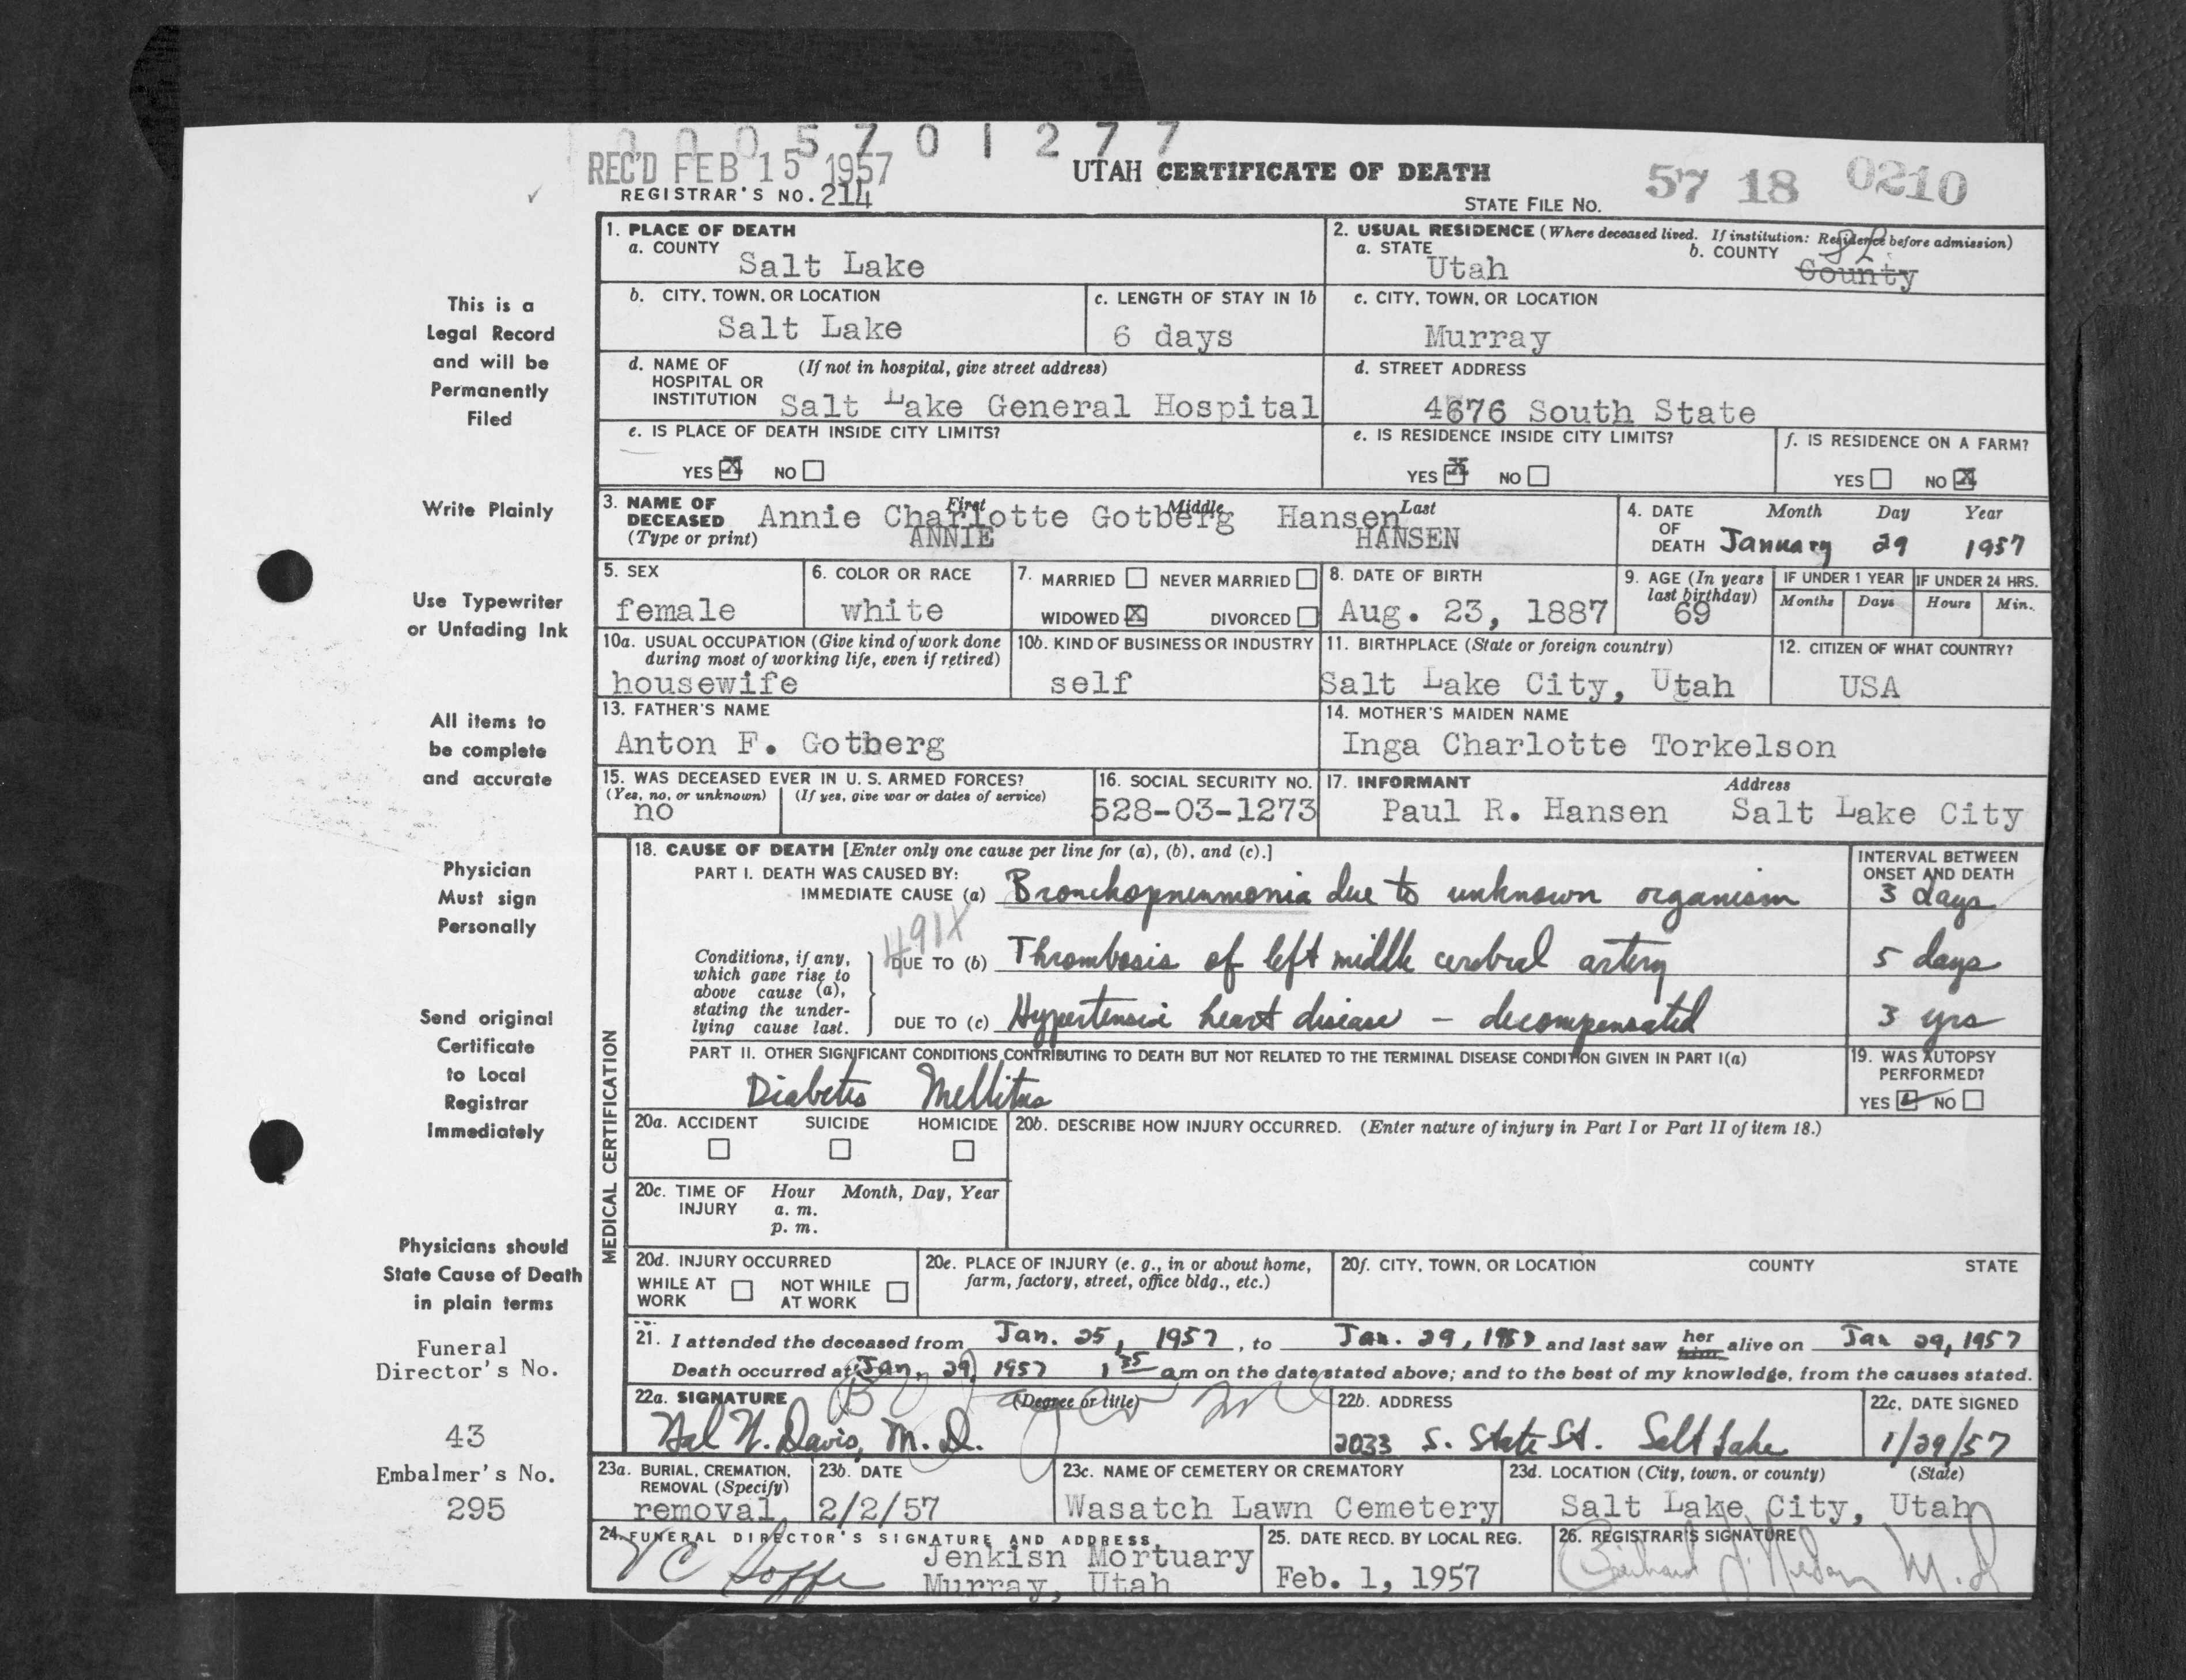 0005701277
REC'D FEB 15 1957
UTAH CERTIFICATE OF DEATH
57 18 0210
REGISTRAR'S NO. 214
STATE FILE NO.
1. PLACE OF DEATH
a. COUNTY
Salt Lake
2. USUAL RESIDENCE (Where deceased lived. If institution: Residence before admission)
a. STATE
Utah
b. COUNTY
County
b. CITY, TOWN, OR LOCATION
Salt Lake
c. LENGTH OF STAY IN 1b
6 days
c. CITY, TOWN, OR LOCATION
Murray
d. NAME OF HOSPITAL OR INSTITUTION
(If not in hospital, give street address)
Salt Lake General Hospital
d. STREET ADDRESS
4676 South State
e. IS PLACE OF DEATH INSIDE CITY LIMITS?
YES X NO
e. IS RESIDENCE INSIDE CITY LIMITS?
YES X NO
f. IS RESIDENCE ON A FARM?
YES NO X
3. NAME OF DECEASED (Type or print)
First Middle Last
Annie Charlotte Gotberg Hansen
ANNIE HANSEN
4. DATE OF DEATH
Month Day Year
January 29 1957
5. SEX
female
6. COLOR OR RACE
white
7. MARRIED NEVER MARRIED
WIDOWED X DIVORCED
8. DATE OF BIRTH
Aug. 23, 1887
9. AGE (In years last birthday)
69
IF UNDER 1 YEAR
Months Days
IF UNDER 24 HRS.
Hours Min.
10a. USUAL OCCUPATION (Give kind of work done during most of working life, even if retired)
housewife
10b. KIND OF BUSINESS OR INDUSTRY
self
11. BIRTHPLACE (State or foreign country)
Salt Lake City, Utah
12. CITIZEN OF WHAT COUNTRY?
USA
13. FATHER'S NAME
Anton F. Gotberg
14. MOTHER'S MAIDEN NAME
Inga Charlotte Torkelson
15. WAS DECEASED EVER IN U. S. ARMED FORCES?
(Yes, no, or unknown) (If yes, give war or dates of service)
no
16. SOCIAL SECURITY NO.
528-03-1273
17. INFORMANT Address
Paul R. Hansen Salt Lake City
MEDICAL CERTIFICATION
18. CAUSE OF DEATH [Enter only one cause per line for (a), (b), and (c).]
INTERVAL BETWEEN ONSET AND DEATH
PART I. DEATH WAS CAUSED BY:
IMMEDIATE CAUSE (a) Bronchopneumonia due to unknown organism 3 days
491X
Conditions, if any, which gave rise to above cause (a), stating the underlying cause last.
DUE TO (b) Thrombosis of left middle cerebral artery 5 days
DUE TO (c) Hypertensive heart disease - decompensated 3 yrs
PART II. OTHER SIGNIFICANT CONDITIONS CONTRIBUTING TO DEATH BUT NOT RELATED TO THE TERMINAL DISEASE CONDITION GIVEN IN PART I(a)
Diabetes Mellitus
19. WAS AUTOPSY PERFORMED?
YES NO
20a. ACCIDENT SUICIDE HOMICIDE
20b. DESCRIBE HOW INJURY OCCURRED. (Enter nature of injury in Part I or Part II of item 18.)
20c. TIME OF INJURY
Hour Month, Day, Year
a. m.
p. m.
20d. INJURY OCCURRED
WHILE AT WORK NOT WHILE AT WORK
20e. PLACE OF INJURY (e. g., in or about home, farm, factory, street, office bldg., etc.)
20f. CITY, TOWN, OR LOCATION COUNTY STATE
21. I attended the deceased from Jan. 25, 1957, to Jan. 29, 1957 and last saw her him alive on Jan 29, 1957
Death occurred at Jan. 29, 1957 1 35 am on the date stated above; and to the best of my knowledge, from the causes stated.
22a. SIGNATURE (Degree or title)
Hal N. Davis, M.D.
22b. ADDRESS
2033 S. State St. Salt Lake
22c. DATE SIGNED
1/29/57
23a. BURIAL, CREMATION, REMOVAL (Specify)
removal
23b. DATE
2/2/57
23c. NAME OF CEMETERY OR CREMATORY
Wasatch Lawn Cemetery
23d. LOCATION (City, town, or county) (State)
Salt Lake City, Utah
24. FUNERAL DIRECTOR'S SIGNATURE AND ADDRESS
Jenkisn Mortuary
Murray, Utah
25. DATE RECD. BY LOCAL REG.
Feb. 1, 1957
26. REGISTRAR'S SIGNATURE
M.D.
This is a
Legal Record
and will be
Permanently
Filed
Write Plainly
Use Typewriter
or Unfading Ink
All items to
be complete
and accurate
Physician
Must sign
Personally
Send original
Certificate
to Local
Registrar
Immediately
Physicians should
State Cause of Death
in plain terms
Funeral
Director's No.
43
Embalmer's No.
295